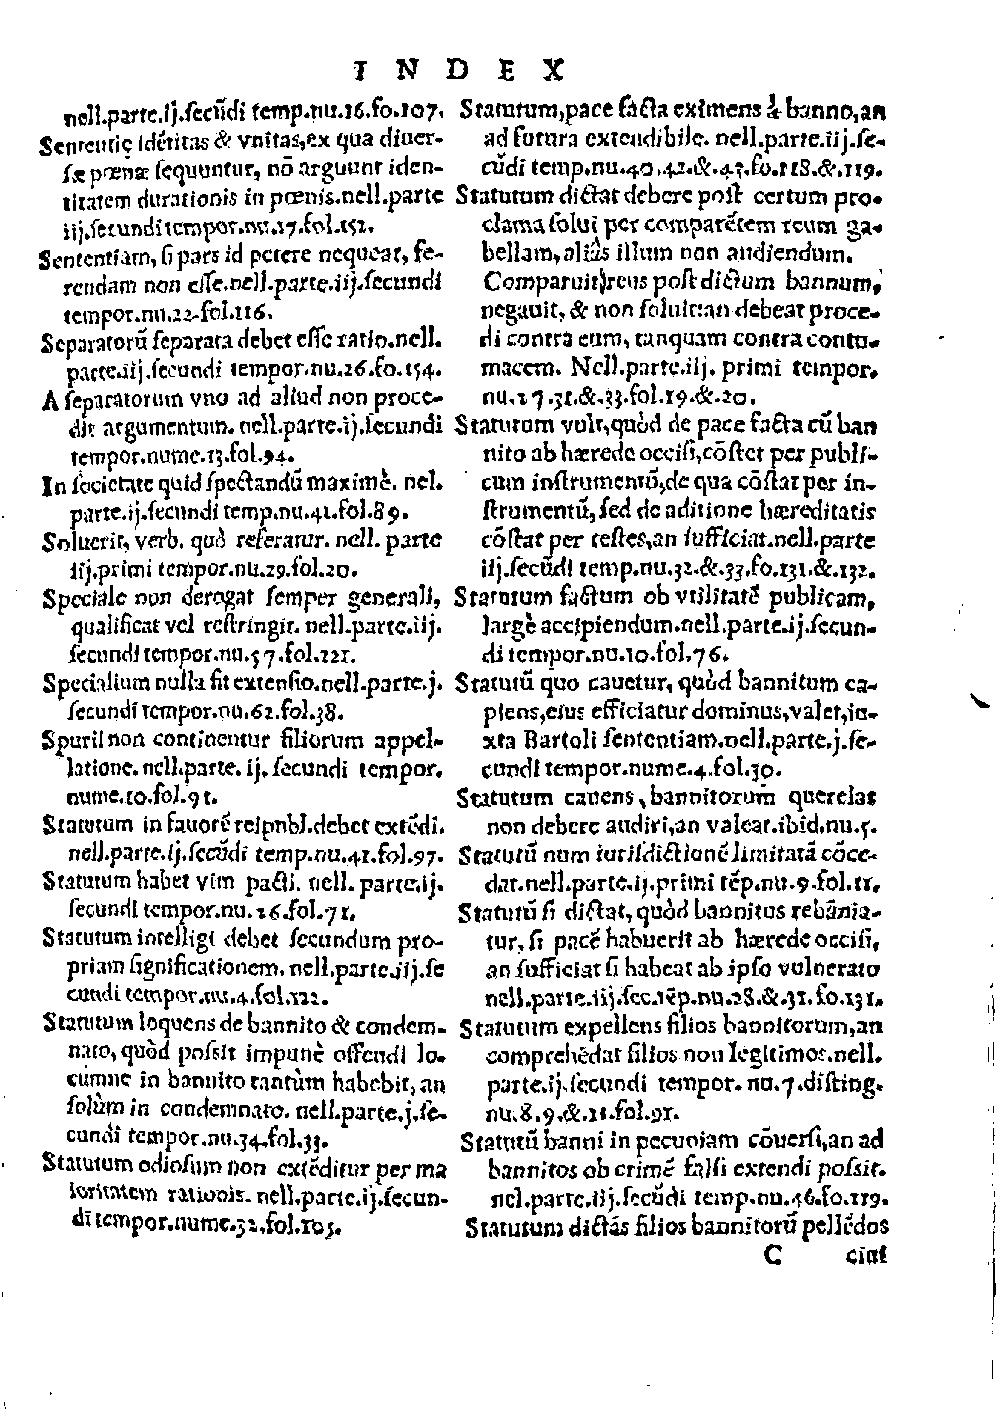 INDEX
nell.parte.ij.ſecũdi temp.nu.16.fo.107.
Sententię idẽtitas & vnitas, ex qua diuer-
ſæ pœnæ ſequuntur, nõ arguunt iden-
titatem durationis in pœnis.nell.parte
iij.ſecundi tempor.nu.17.fol.152.
Sententiam, ſi pars id petere nequeat, fe-
rendam non eſſe.nell.parte.iij.ſecundi
tempor.nu.22.fol.116.
Separatorũ ſeparata debet eſſe ratio.nell.
parte.iij.ſecundi tempor.nu.26.fo.154.
A ſeparatorum vno ad aliud non proce-
dit argumentum. nell.parte.ij.ſecundi
tempor.nume.13.fol.94.
In ſocietate quid ſpectandũ maximè. nel.
parte.ij.ſecundi temp.nu.41.fol.89.
Soluerit, verb. quò referatur. nell. parte
iij.primi tempor.nu.29.fol.20.
Speciale non derogat ſemper generali,
qualificat vel reſtringit. nell.parte.iij.
ſecundi tempor.nu.57.fol.121.
Specialium nulla fit extenſio.nell.parte.j.
ſecundi tempor.nu.62.fol.38.
Spurij non continentur filiorum appel-
latione. nell.parte. ij. ſecundi tempor.
nume.10.fol.91.
Statutum in fauorẽ reipubl.debet extẽdi.
nell.parte.ij.ſecũdi temp.nu.41.fol.97.
Statutum habet vim pacti. nell. parte.ij.
ſecundi tempor.nu.26.fol.71.
Statutum intelligi debet ſecundum pro-
priam ſignificationem. nell.parte.iij.ſe
cundi tempor.nu.4.fol.122.
Statutum loquens de bannito & condem-
nato, quòd poſsit impunè offendi lo-
cumne in bannito tantùm habebit, an
ſolùm in condemnato. nell.parte.j.ſe-
cundi tempor.nu.34.fol.33.
Statutum odioſum non extẽditur per ma
ioritatem rationis. nell.parte.ij.ſecun-
di tempor.nume.32.fol.103.
Statutum, pace facta eximens à banno, an
ad futura extendibile. nell.parte.iij.ſe-
cũdi temp.nu.40.42.&.43.fo.118.&.119.
Statutum dictat debere poſt certum pro-
clama ſolui per comparẽtem reum ga-
bellam, aliàs illum non audiendum.
Comparuit reus poſt dictum bannum,
negauit, & non ſoluit: an debeat proce-
di contra eum, tanquam contra contu-
macem. Nell.parte.iij. primi tempor.
nu.17.31.&.33.fol.19.&.20.
Statutum vult, quòd de pace facta cũ ban
nito ab hærede occiſi, cõſtet per publi-
cum inſtrumentũ, de qua cõſtat per in-
ſtrumentũ, ſed de aditione hæreditatis
cõſtat per teſtes, an ſufficiat.nell.parte
iij.ſecũdi temp.nu.32.&.33.fo.131.&.132.
Statutum factum ob vtilitatẽ publicam,
largè accipiendum.nell.parte.ij.ſecun-
di tempor.nu.10.fol.76.
Statutũ quo cauetur, quòd bannitum ca-
piens, eius efficiatur dominus, valet, iu-
xta Bartoli ſententiam.nell.parte.j.ſe-
cundi tempor.nume.4.fol.30.
Statutum cauens, bannitorum querelas
non debere audiri, an valeat.ibid.nu.5.
Statutũ num iuriſdictionẽ limitatã cõce-
dat.nell.parte.ij.primi tẽp.nu.9.fol.11.
Statutũ ſi dictat, quòd bannitus rebãnia-
tur, ſi pacẽ habuerit ab hærede occiſi,
an ſufficiat ſi habeat ab ipſo vulnerato
nell.parte.iij.ſec.tẽp.nu.28.&.31.fo.131.
Statutum expellens filios bannitorum, an
comprehẽdat filios non legitimos.nell.
parte.ij.ſecundi tempor. nu.7.diſting.
nu.8.9.&.11.fol.91.
Statutũ banni in pecuniam cõuerſi, an ad
bannitos ob crimẽ falſi extendi poſsit.
nel.parte.iij.ſecũdi temp.nu.46.fo.119.
Statutum dictãs filios bannitorũ pellẽdos
C